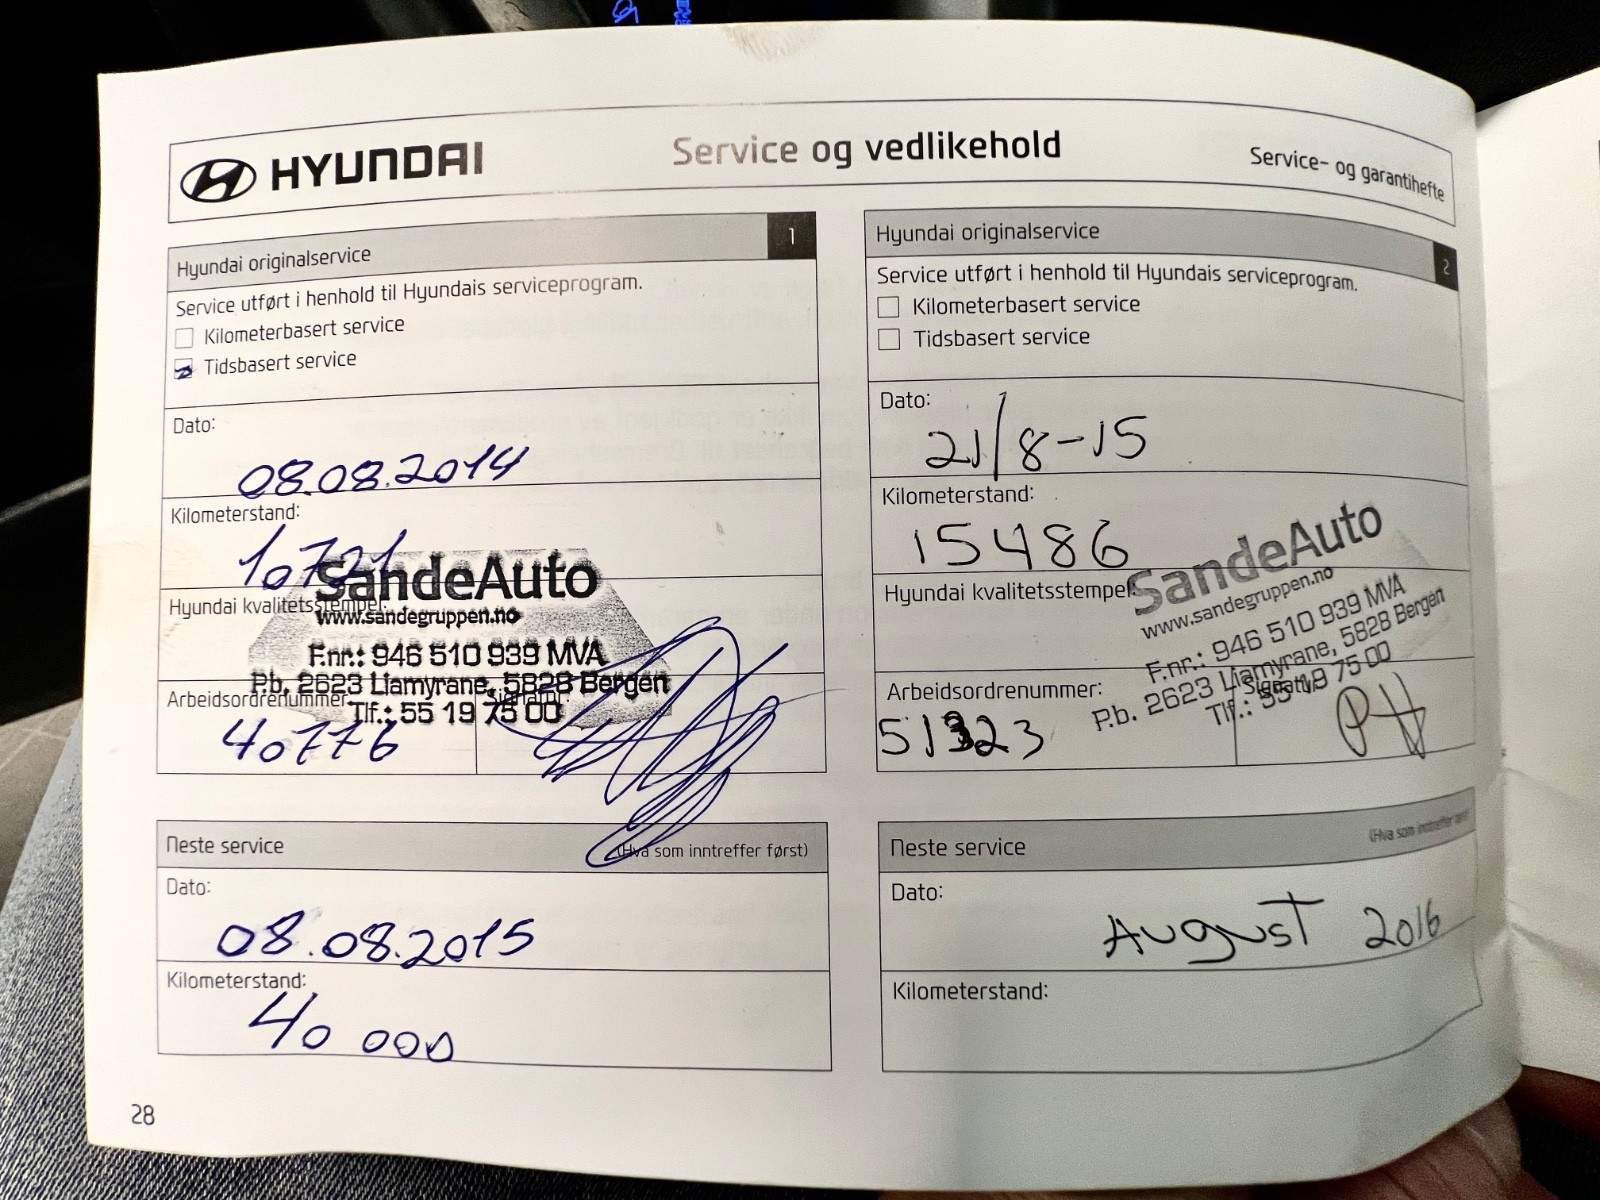 HYUNDAI
Service og vedlikehold
Service- og garantihefte
Hyundai originalservice
1
Service utført i henhold til Hyundais serviceprogram.
Kilometerbasert service
Tidsbasert service
Dato:
08.08.2014
Kilometerstand:
10721
Hyundai kvalitetsstempel:
SandeAuto
www.sandegruppen.no
F.nr.: 946 510 939 MVA
P.b. 2623 Liamyrane, 5828 Bergen
Tlf.: 55 19 75 00
Arbeidsordrenummer:
Signatur:
40776
Neste service
(Hva som inntreffer først)
Dato:
08.08.2015
Kilometerstand:
40 000
Hyundai originalservice
2
Service utført i henhold til Hyundais serviceprogram.
Kilometerbasert service
Tidsbasert service
Dato:
21/8-15
Kilometerstand:
15486
Hyundai kvalitetsstempel:
SandeAuto
www.sandegruppen.no
F.nr.: 946 510 939 MVA
P.b. 2623 Liamyrane, 5828 Bergen
Tlf.: 55 19 75 00
Arbeidsordrenummer:
Signatur:
51323
PH
Neste service
(Hva som inntreffer først)
Dato:
August 2016
Kilometerstand:
28